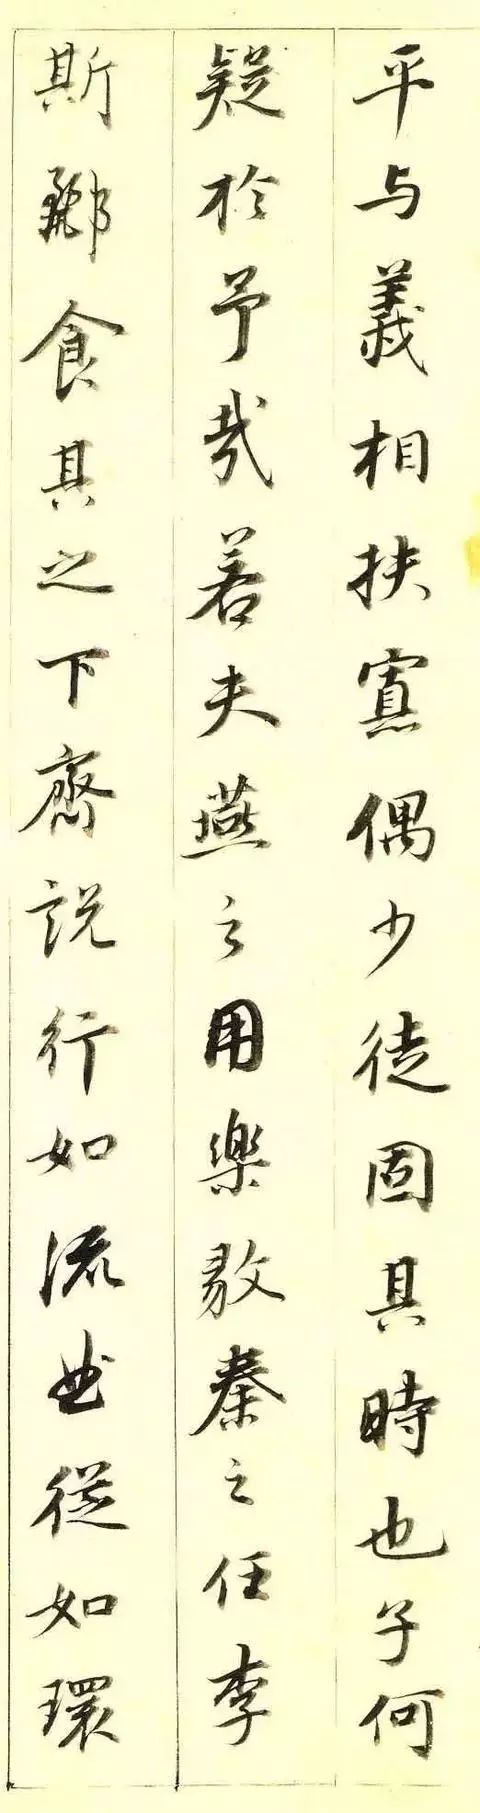 平与義相扶寡偶少徒固其時也子何
疑於予哉若夫燕之用樂毅秦之任李
斯酈食其之下齊說行如流曲從如環